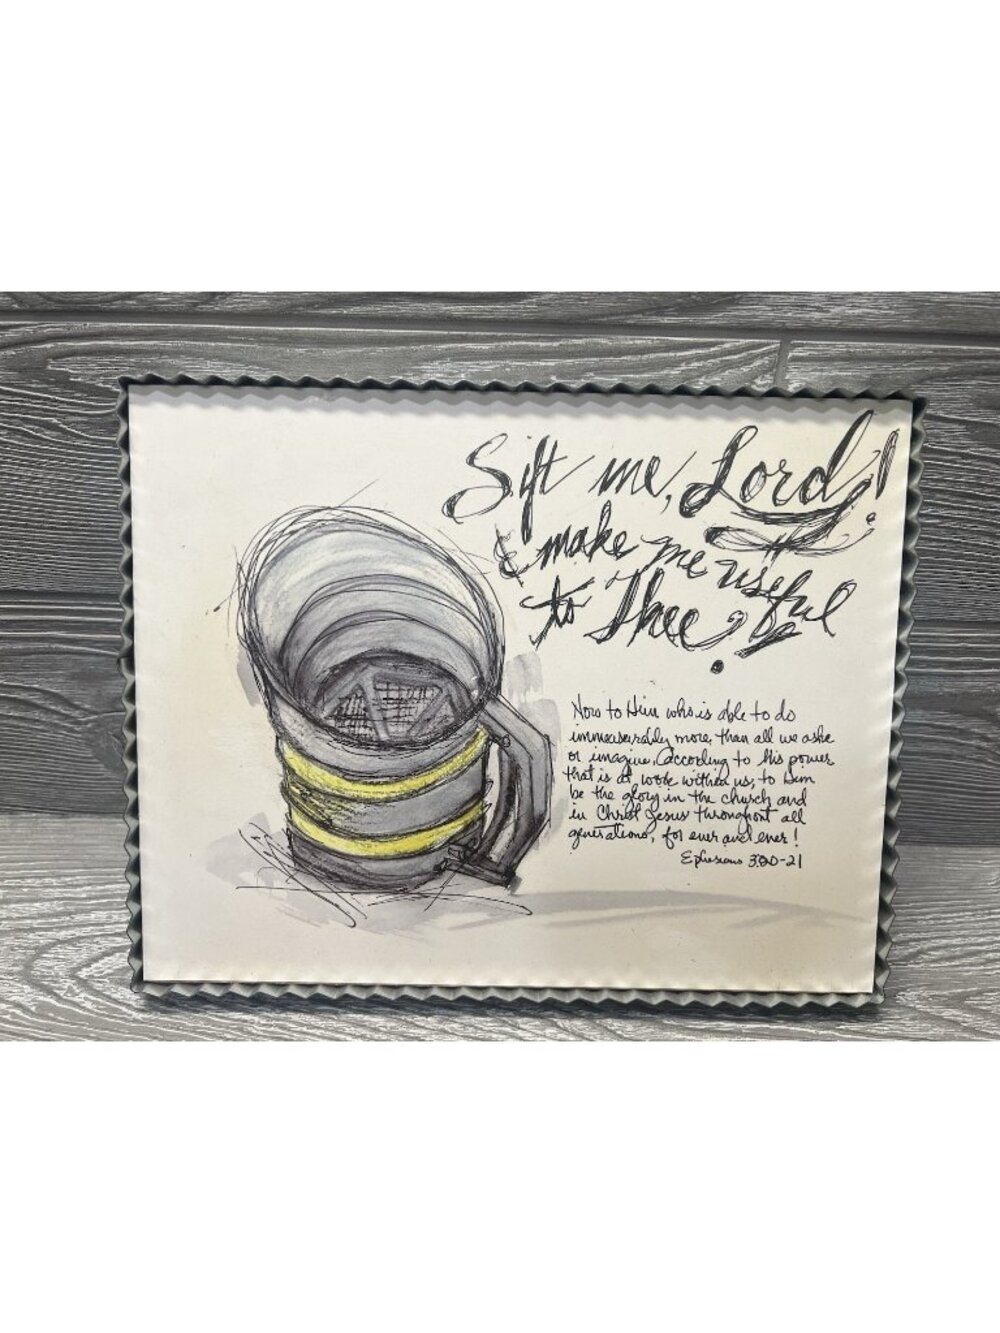 Sift me, Lord!
& make me useful
to Thee!
Now to Him who is able to do
immeasurably more, than all we aske
or imagine, according to His power
that is at work within us, to Him
be the glory in the church and
in Christ Jesus throughout all
generations, for ever and ever!
Ephesians 3:20-21